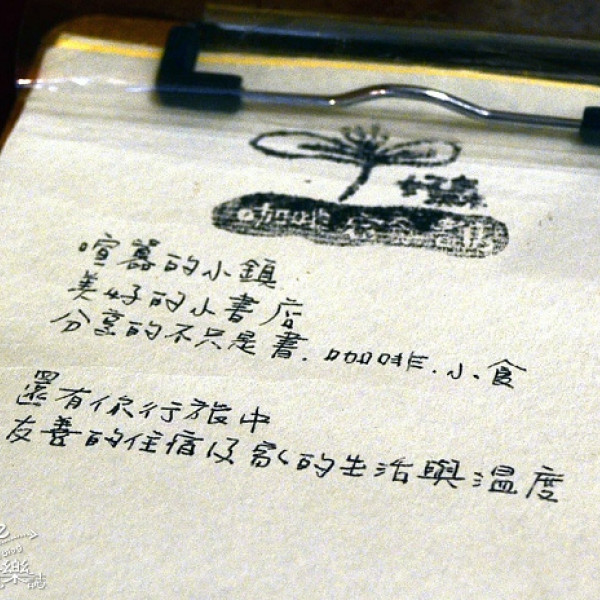 咖啡
喧囂的小鎮
美好的小書店
分享的不只是書.咖啡.小食
還有你行旅中
友善的住宿及家的生活與溫度
樂誌